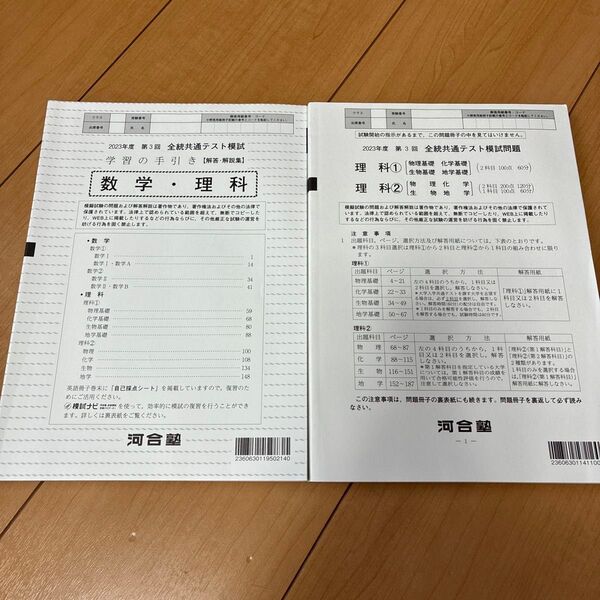 クラス
受験番号
出席番号
氏名
2023年度 第3回 全統共通テスト模試
学習の手引き【解答・解説集】
数学・理科
模擬試験の問題および解答解説は著作物であり、著作権法およびその他の法律で
保護されています。法律上で認められている範囲を超えて、無断でコピーした
り、WEB上に掲載したりするなどの行為ならびに、その他厳正な試験の運営を
妨げる行為を固く禁止します。
・数学
数学①
数学Ⅰ 1
数学Ⅰ・数学A 14
数学②
数学Ⅱ 34
数学Ⅱ・数学B 41
・理科
理科①
物理基礎 59
化学基礎 68
生物基礎 80
地学基礎 93
理科②
物理 100
化学 108
生物 134
地学 148
英語冊子巻末に「自己採点シート」を掲載していますので、復習のた
めにご活用ください。
模試ナビ を使って、効率的に模試の復習を行うことができ
ます。詳しくは裏表紙をご覧ください。
河合塾
2360630119502140
クラス
受験番号
出席番号
氏名
試験開始の指示があるまで、この問題冊子の中を見てはいけません。
2023年度 第3回 全統共通テスト模試問題
理科① [物理基礎 化学基礎 生物基礎 地学基礎] (2科目 100点 60分)
理科② [物理 化学 生物 地学] (2科目 200点 120分 1科目 100点 60分)
模擬試験の問題および解答解説は著作物であり、著作権法およびその他の法律で
保護されています。法律上で認められている範囲を超えて、無断でコピーした
り、WEB上に掲載したりするなどの行為ならびに、その他厳正な試験の運営を
妨げる行為を固く禁止します。
注意事項
1 出題科目、ページ、選択方法及び解答用紙については、下表のとおりです。
*理科の3科目選択は理科①から2科目と理科②から1科目の組み合わせに限り
ます。
理科①
出題科目 ページ 選択方法 解答用紙
物理基礎 4~21
化学基礎 22~33
生物基礎 34~49
地学基礎 50~67
左の4科目のうちから、1科
目又は2科目を選択し、解答し
なさい。
「理科①」解答用紙に1
科目又は2科目を解答し
なさい。
理科②
出題科目 ページ 選択方法 解答用紙
物理 68~87
化学 88~115
生物 116~151
地学 152~187
左の4科目のうちから、1科
目又は2科目を選択し、解答
しなさい。
この注意事項は、問題冊子の裏表紙にも続きます。問題冊子を裏返して必ず読み
なさい。
河合塾
-1-
2360630114110